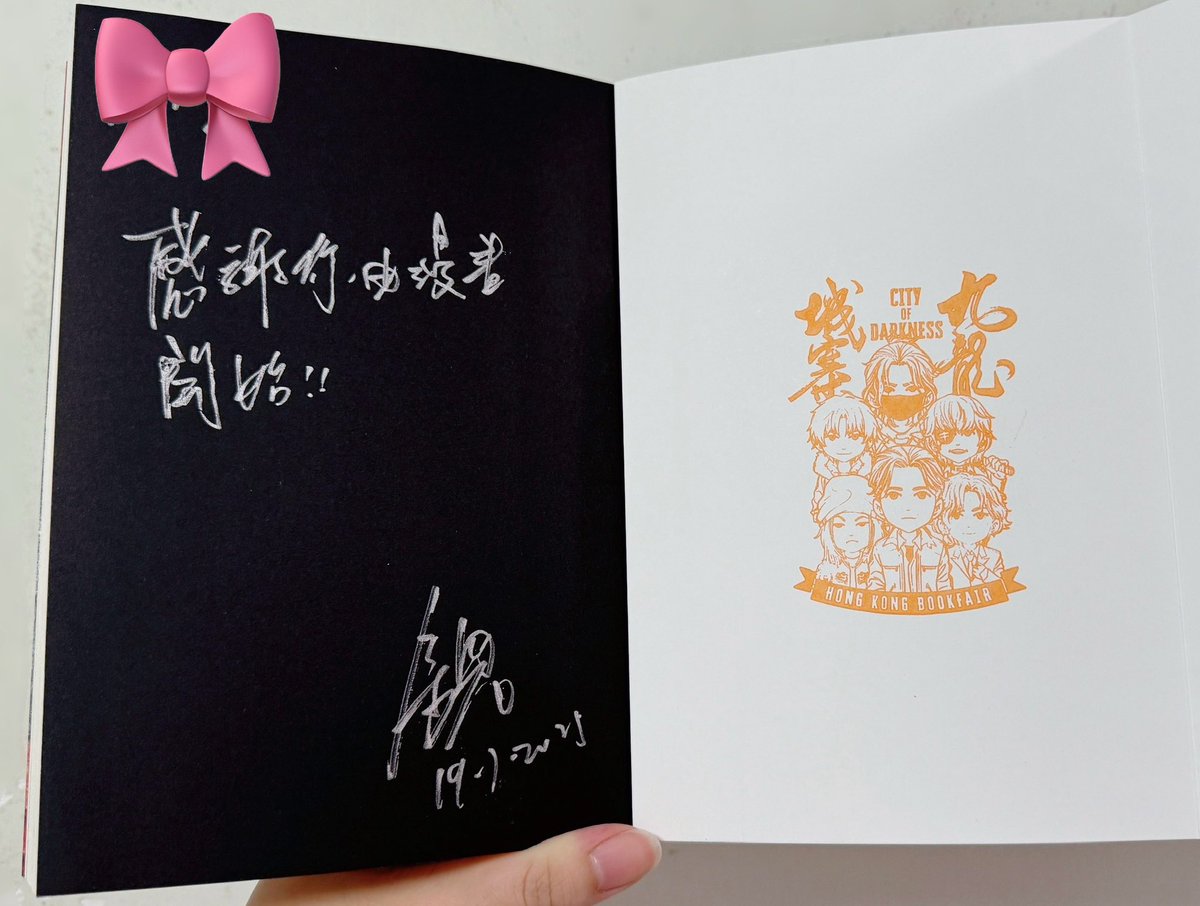 感謝你,由漫畫
開始!!
19-7-2025
九龍
城寨
CITY
OF
DARKNESS
HONG KONG BOOKFAIR